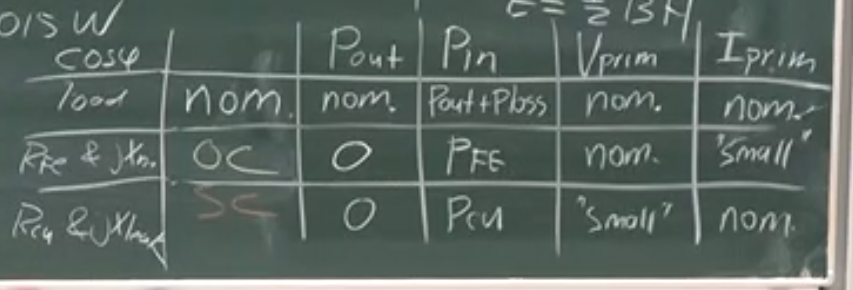 015 W
E = ½ BH
cosφ Pout Pin Vprim Iprim
load nom. nom. Pout+Ploss nom. nom.
RFe & jXm. OC 0 PFE nom. "Small"
Rcu & jXleak SC 0 Pcu "Small" nom.